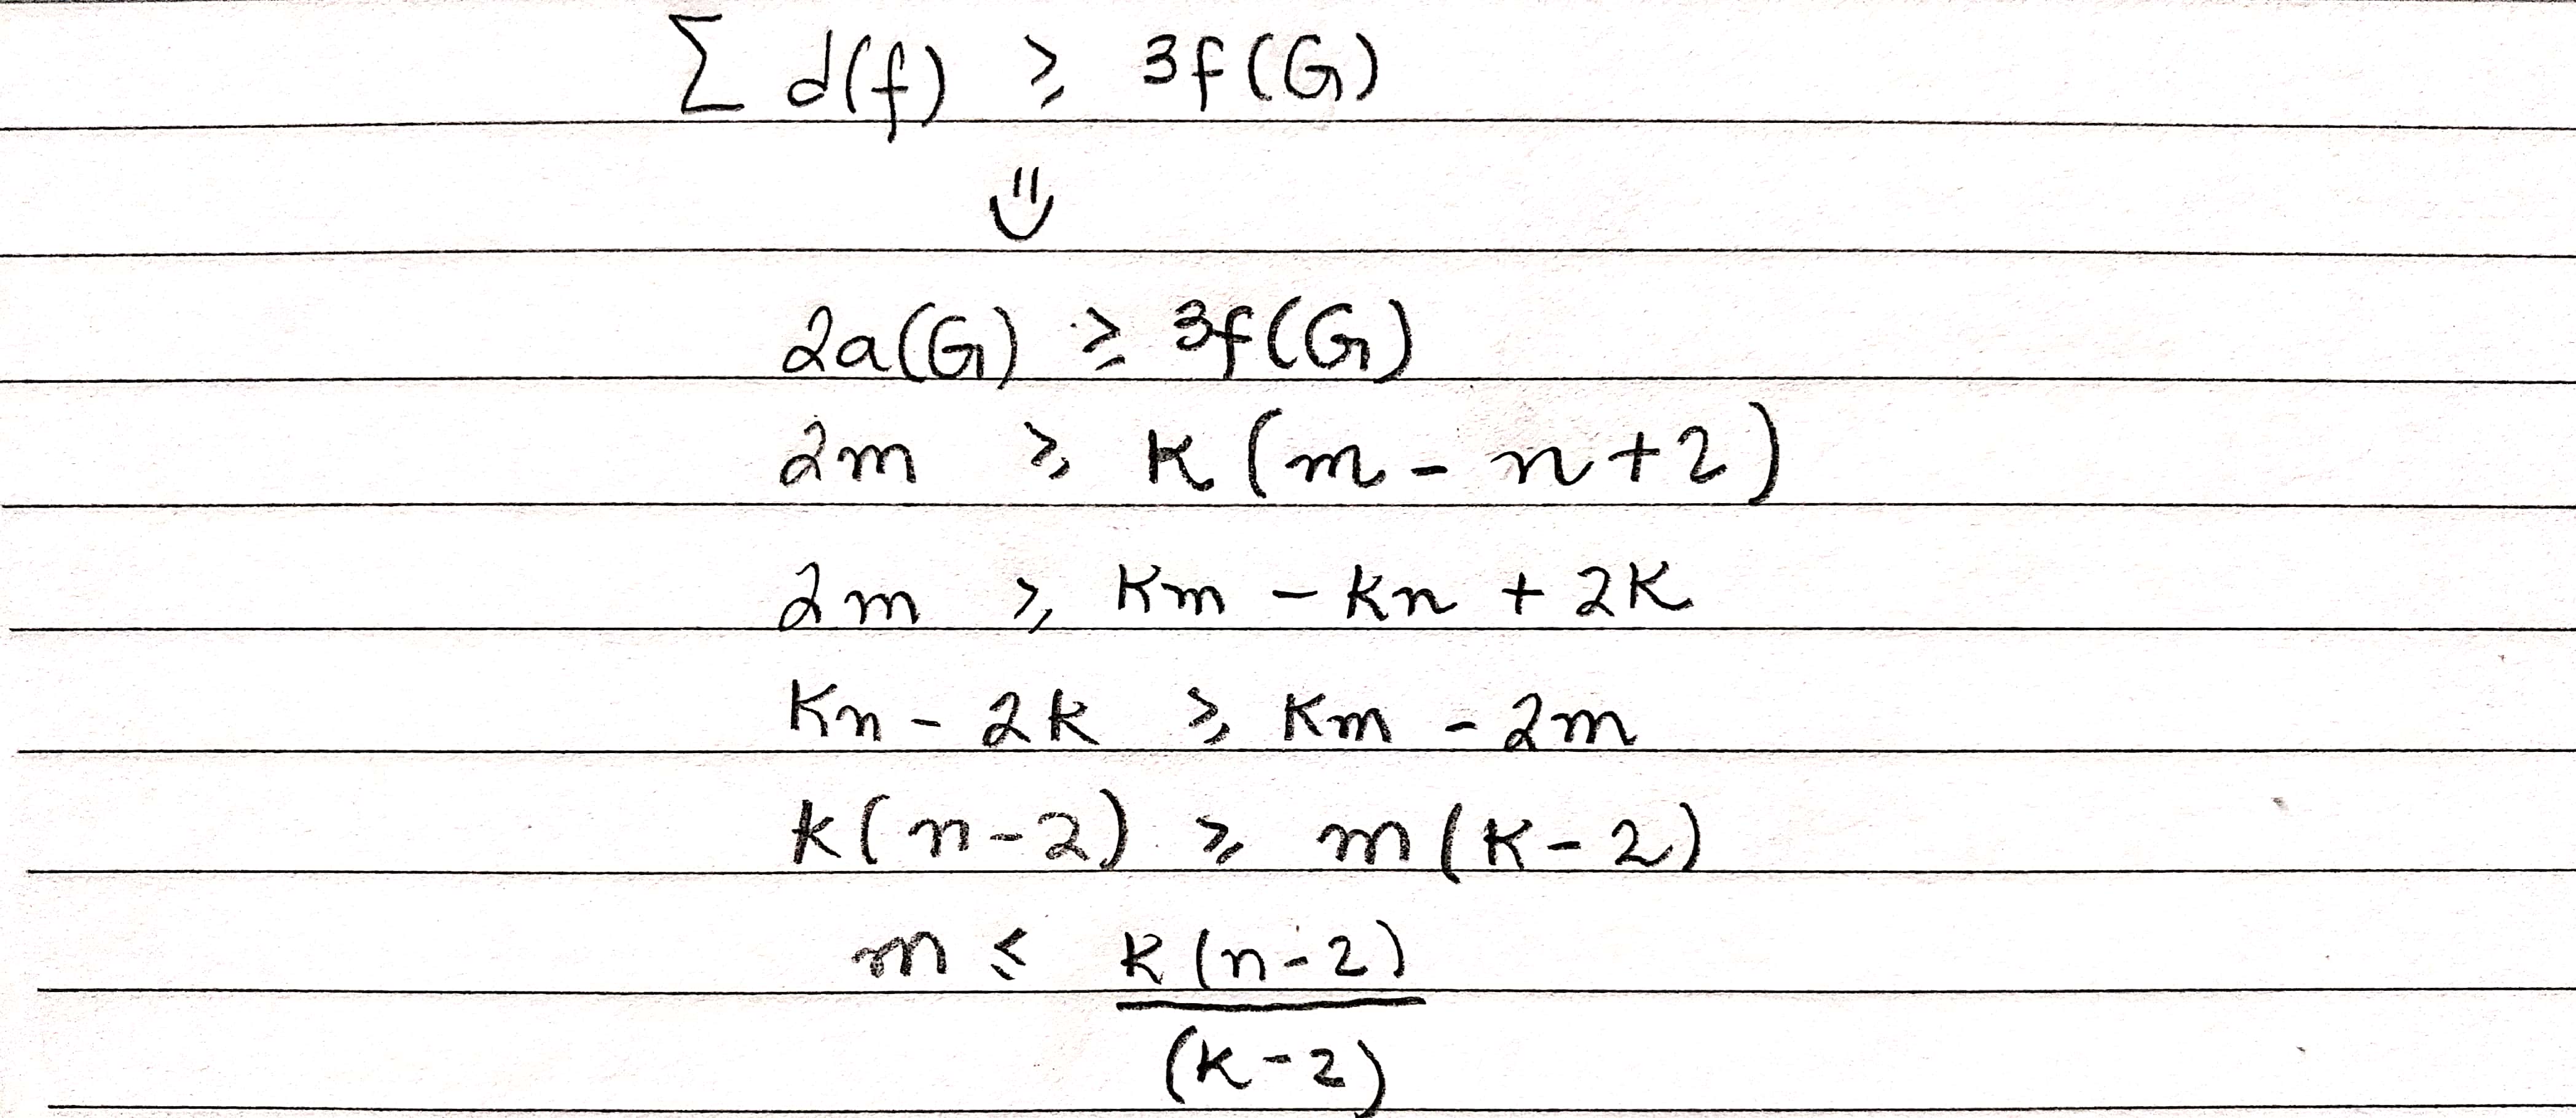 ∑ d(f) ≥ 3f(G)
⇓
2a(G) ≥ 3f(G)
2m ≥ k(m - n + 2)
2m ≥ km - kn + 2k
kn - 2k ≥ km - 2m
k(n-2) ≥ m(k-2)
m ≤ k(n-2)
(k-2)